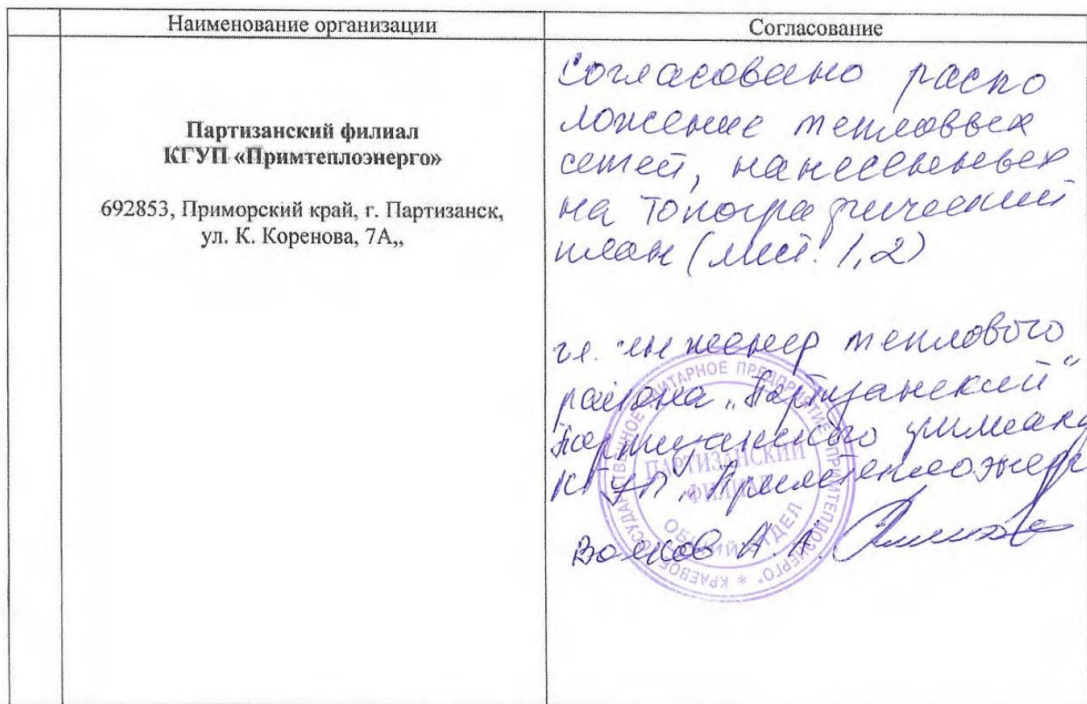 Наименование организации
Согласование
Партизанский филиал
КГУП «Примтеплоэнерго»
692853, Приморский край, г. Партизанск,
ул. К. Коренова, 7А,,
Согласовано распо
ложение тепловых
сетей, нанесенных
на топографический
план (лист. 1,2)
гл. инженер теплового
района „Партизанский"
Партизанского филиала
КГУП „Примтеплоэнерг
Волков А. А.
КРАЕВОЕ ГОСУДАРСТВЕННОЕ УНИТАРНОЕ ПРЕДПРИЯТИЕ "ПРИМТЕПЛОЭНЕРГО" *
ПАРТИЗАНСКИЙ
ФИЛИАЛ
ОБЩИЙ ОТДЕЛ